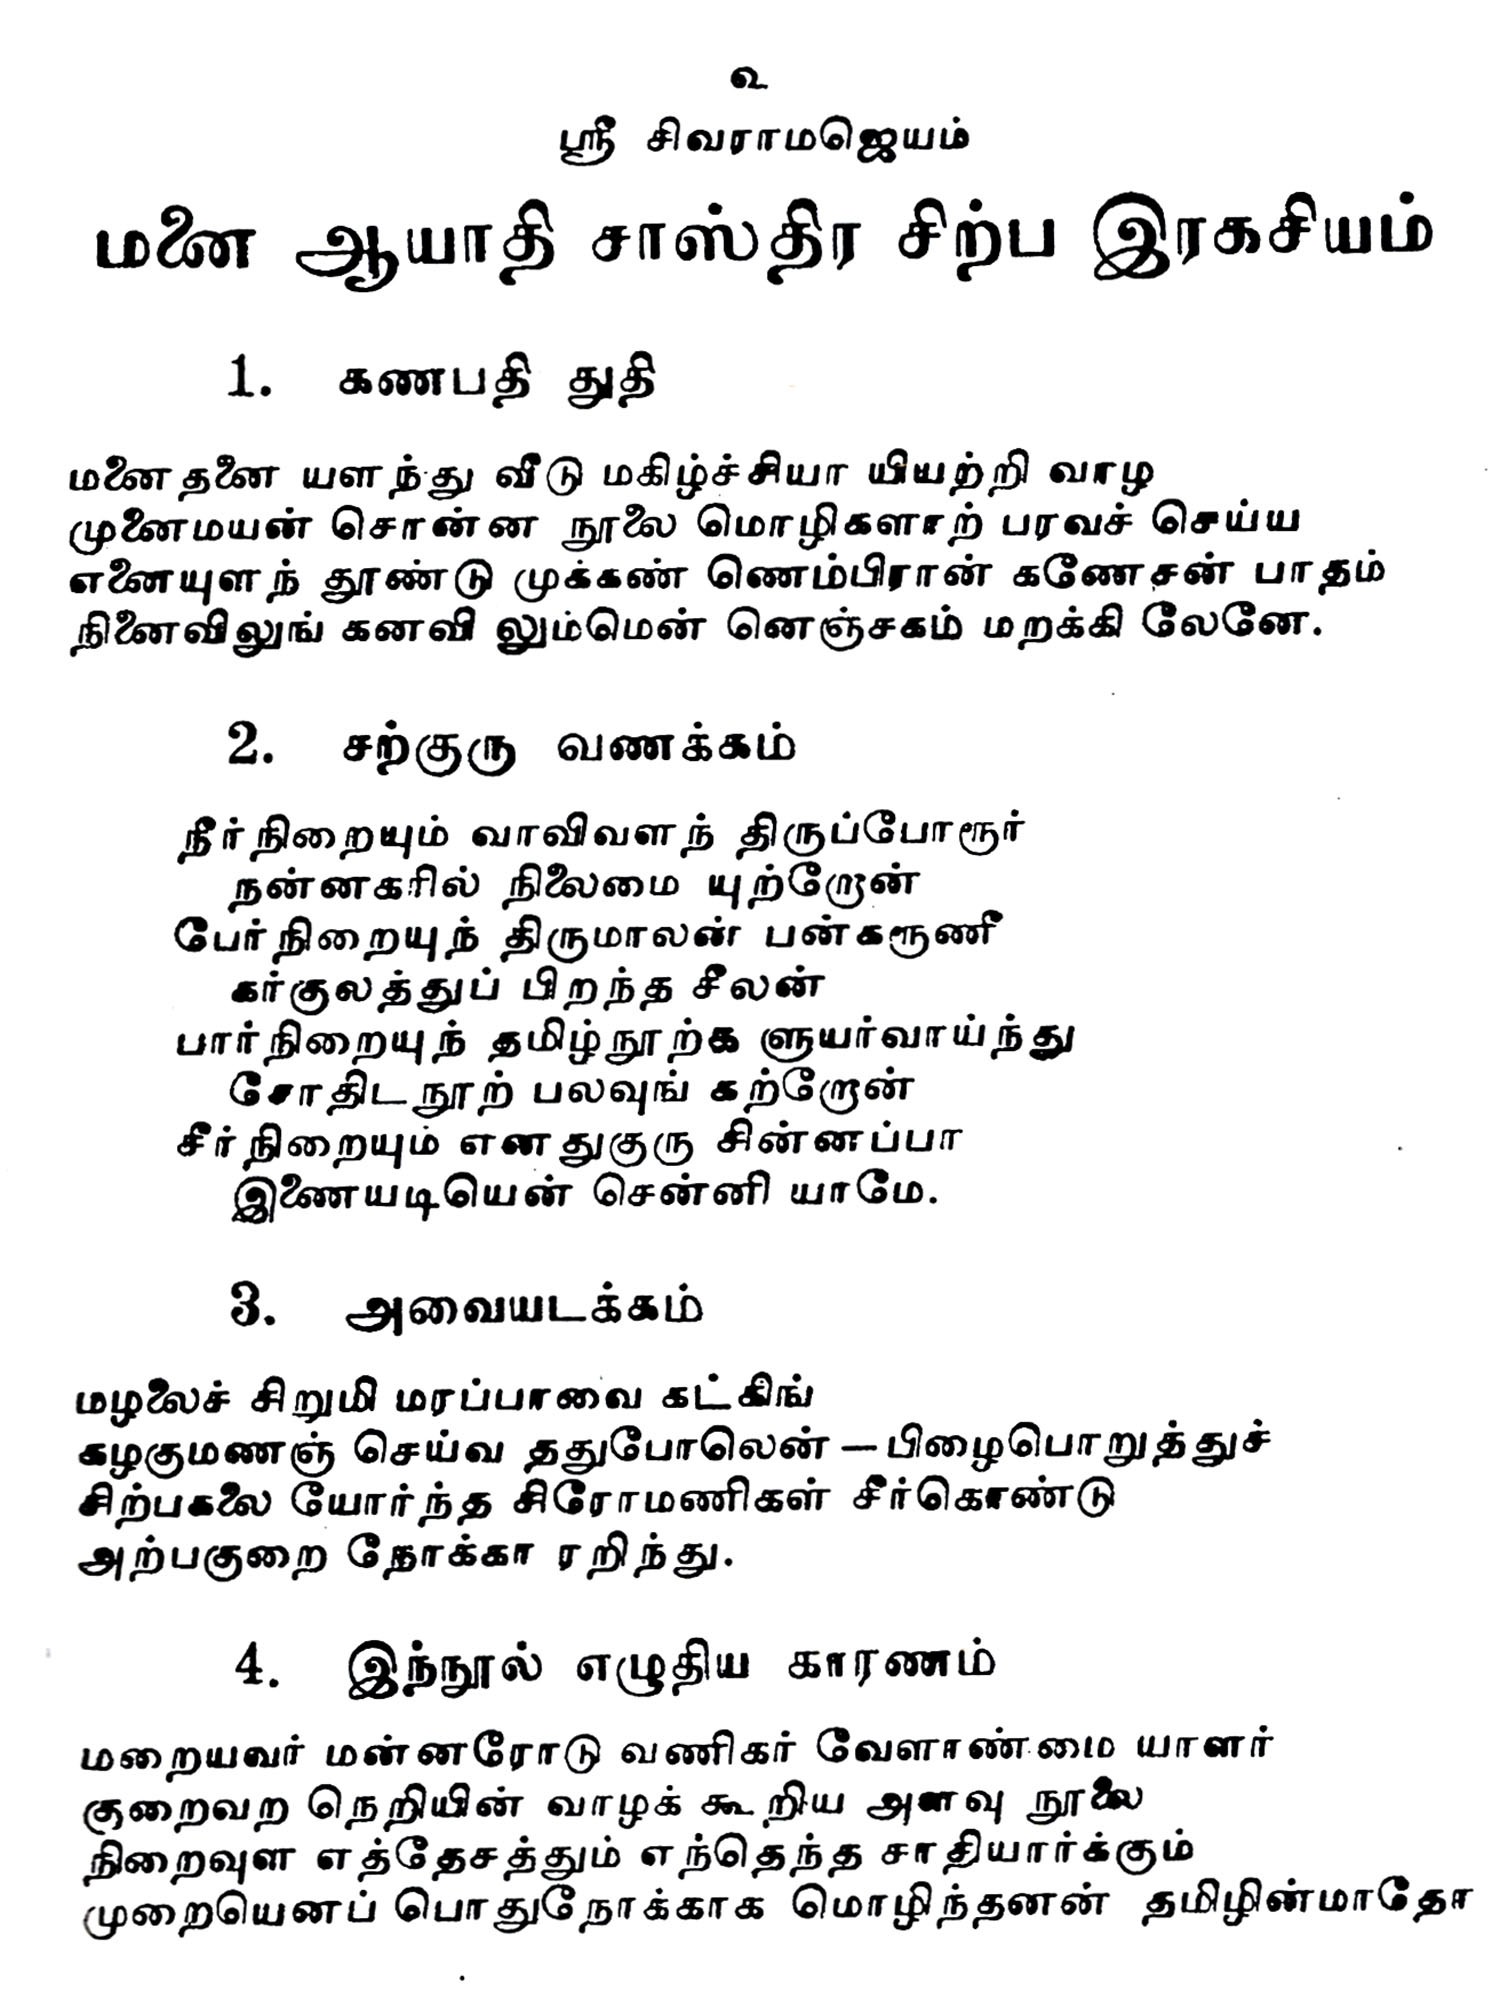 உ
ஸ்ரீ சிவராமஜெயம்
மனை ஆயாதி சாஸ்திர சிற்ப இரகசியம்
1. கணபதி துதி
மனைதனை யளந்து வீடு மகிழ்ச்சியா யியற்றி வாழ
முனைமயன் சொன்ன நூலை மொழிகளாற் பரவச் செய்ய
எனையுளந் தூண்டு முக்கண் ணெம்பிரான் கணேசன் பாதம்
நினைவிலுங் கனவி லும்மென் னெஞ்சகம் மறக்கி லேனே.
2. சற்குரு வணக்கம்
நீர்நிறையும் வாவிவளந் திருப்போரூர்
நன்னகரில் நிலைமை யுற்றேன்
பேர்நிறையுந் திருமாலன் பன்கருணீ
கர்குலத்துப் பிறந்த சீலன்
பார்நிறையுந் தமிழ்நூற்க ளுயர்வாய்ந்து
சோதிடநூற் பலவுங் கற்றேன்
சீர்நிறையும் எனதுகுரு சின்னப்பா
இணையடியென் சென்னி யாமே.
3. அவையடக்கம்
மழலைச் சிறுமி மரப்பாவை கட்கிங்
கழகுமணஞ் செய்வ ததுபோலென் — பிழைபொறுத்துச்
சிற்பகலை யோர்ந்த சிரோமணிகள் சீர்கொண்டு
அற்பகுறை நோக்கா ரறிந்து.
4. இந்நூல் எழுதிய காரணம்
மறையவர் மன்னரோடு வணிகர் வேளாண்மை யாளர்
குறைவற நெறியின் வாழக் கூறிய அளவு நூலை
நிறைவுள எத்தேசத்தும் எந்தெந்த சாதியார்க்கும்
முறையெனப் பொதுநோக்காக மொழிந்தனன் தமிழின்மாதோ